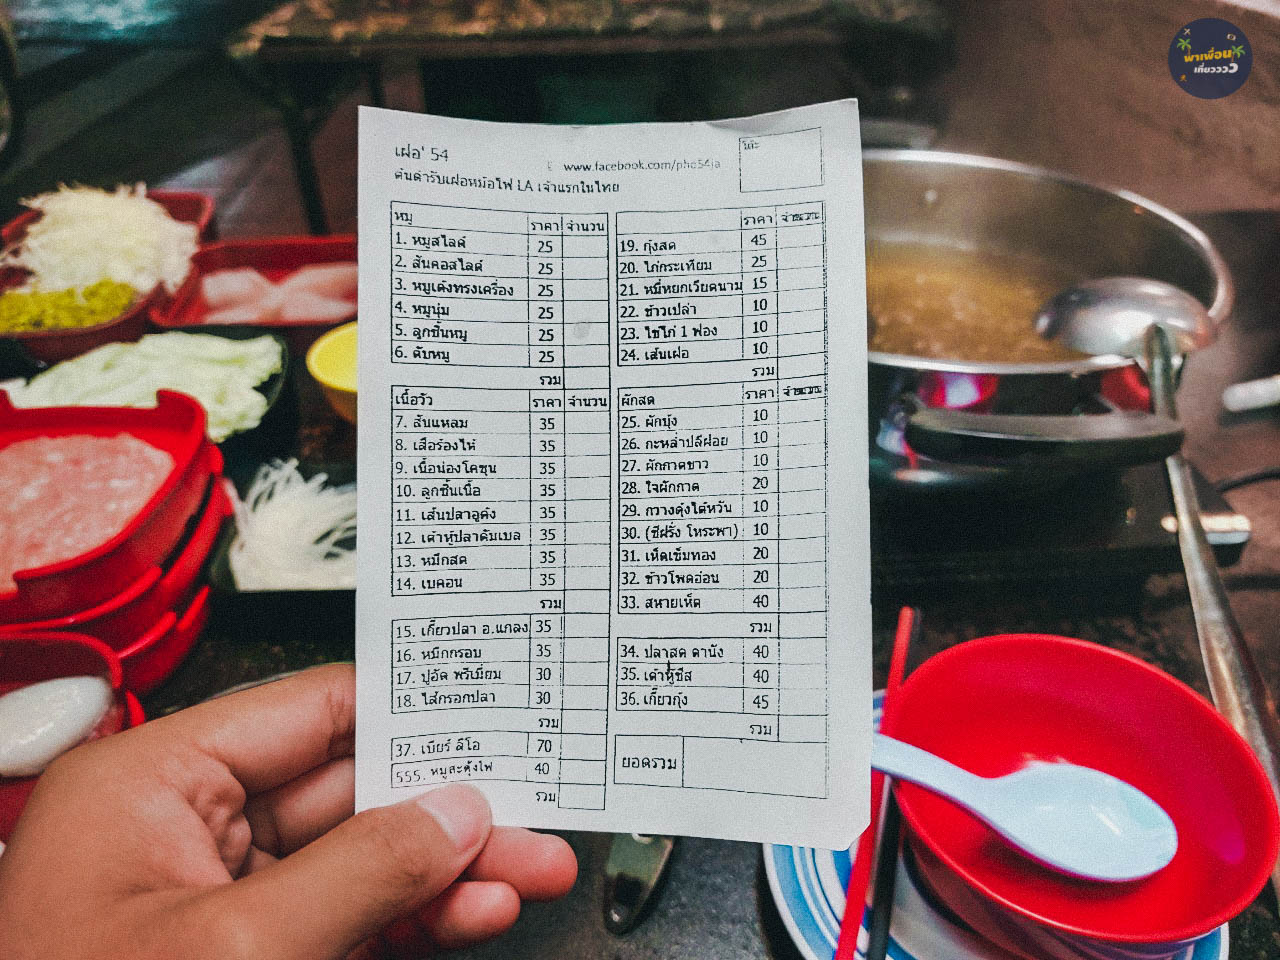 พาเพื่อน
เที่ยวววว
เฝอ' 54
www.facebook.com/pho54ja
ต้นตำรับเฝอหม้อไฟ LA เจ้าแรกในไทย
โต๊ะ
หมู ราคา จำนวน
1. หมูสไลด์ 25
2. สันคอสไลด์ 25
3. หมูเด้งทรงเครื่อง 25
4. หมูนุ่ม 25
5. ลูกชิ้นหมู 25
6. ตับหมู 25
รวม
เนื้อวัว ราคา จำนวน
7. สันแหลม 35
8. เสือร้องไห้ 35
9. เนื้อน่องโคขุน 35
10. ลูกชิ้นเนื้อ 35
11. เส้นปลาอูด้ง 35
12. เต้าหู้ปลาดับเบล 35
13. หมึกสด 35
14. เบคอน 35
รวม
15. เกี๊ยวปลา อ.แกลง 35
16. หมึกกรอบ 35
17. ปูอัด พรีเมี่ยม 30
18. ไส้กรอกปลา 30
รวม
37. เบียร์ ลีโอ 70
555. หมูสะดุ้งไฟ 40
รวม
ราคา จำนวน
19. กุ้งสด 45
20. ไก่กระเทียม 25
21. หมี่หยกเวียดนาม 15
22. ข้าวเปล่า 10
23. ไข่ไก่ 1 ฟอง 10
24. เส้นเฝอ 10
รวม
ผักสด ราคา จำนวน
25. ผักบุ้ง 10
26. กะหล่ำปลีฝอย 10
27. ผักกาดขาว 10
28. ใจผักกาด 20
29. กวางตุ้งไต้หวัน 10
30. (ชีฝรั่ง โหระพา) 10
31. เห็ดเข็มทอง 20
32. ข้าวโพดอ่อน 20
33. สหายเห็ด 40
รวม
34. ปลาสด ดานัง 40
35. เต้าหู้ชีส 40
36. เกี๊ยวกุ้ง 45
รวม
ยอดรวม